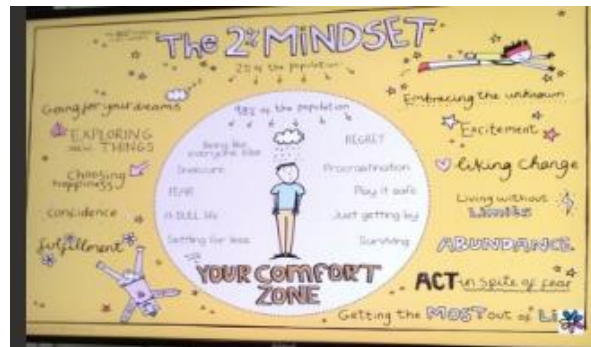 The 2% MINDSET
2% of the population
Going for your dreams
EXPLORING
new THINGS
Choosing
happiness
Confidence
fulfillment
98% of the population
Being like
everyone else
Insecure
FEAR
A DULL life
Settling for less
REGRET
Procrastination
Play it safe
Just getting by
Surviving
YOUR COMFORT
ZONE
Embracing the unknown
Excitement
liking change
Living without
Limits
ABUNDANCE
ACT in spite of fear
Getting the MOST out of Li